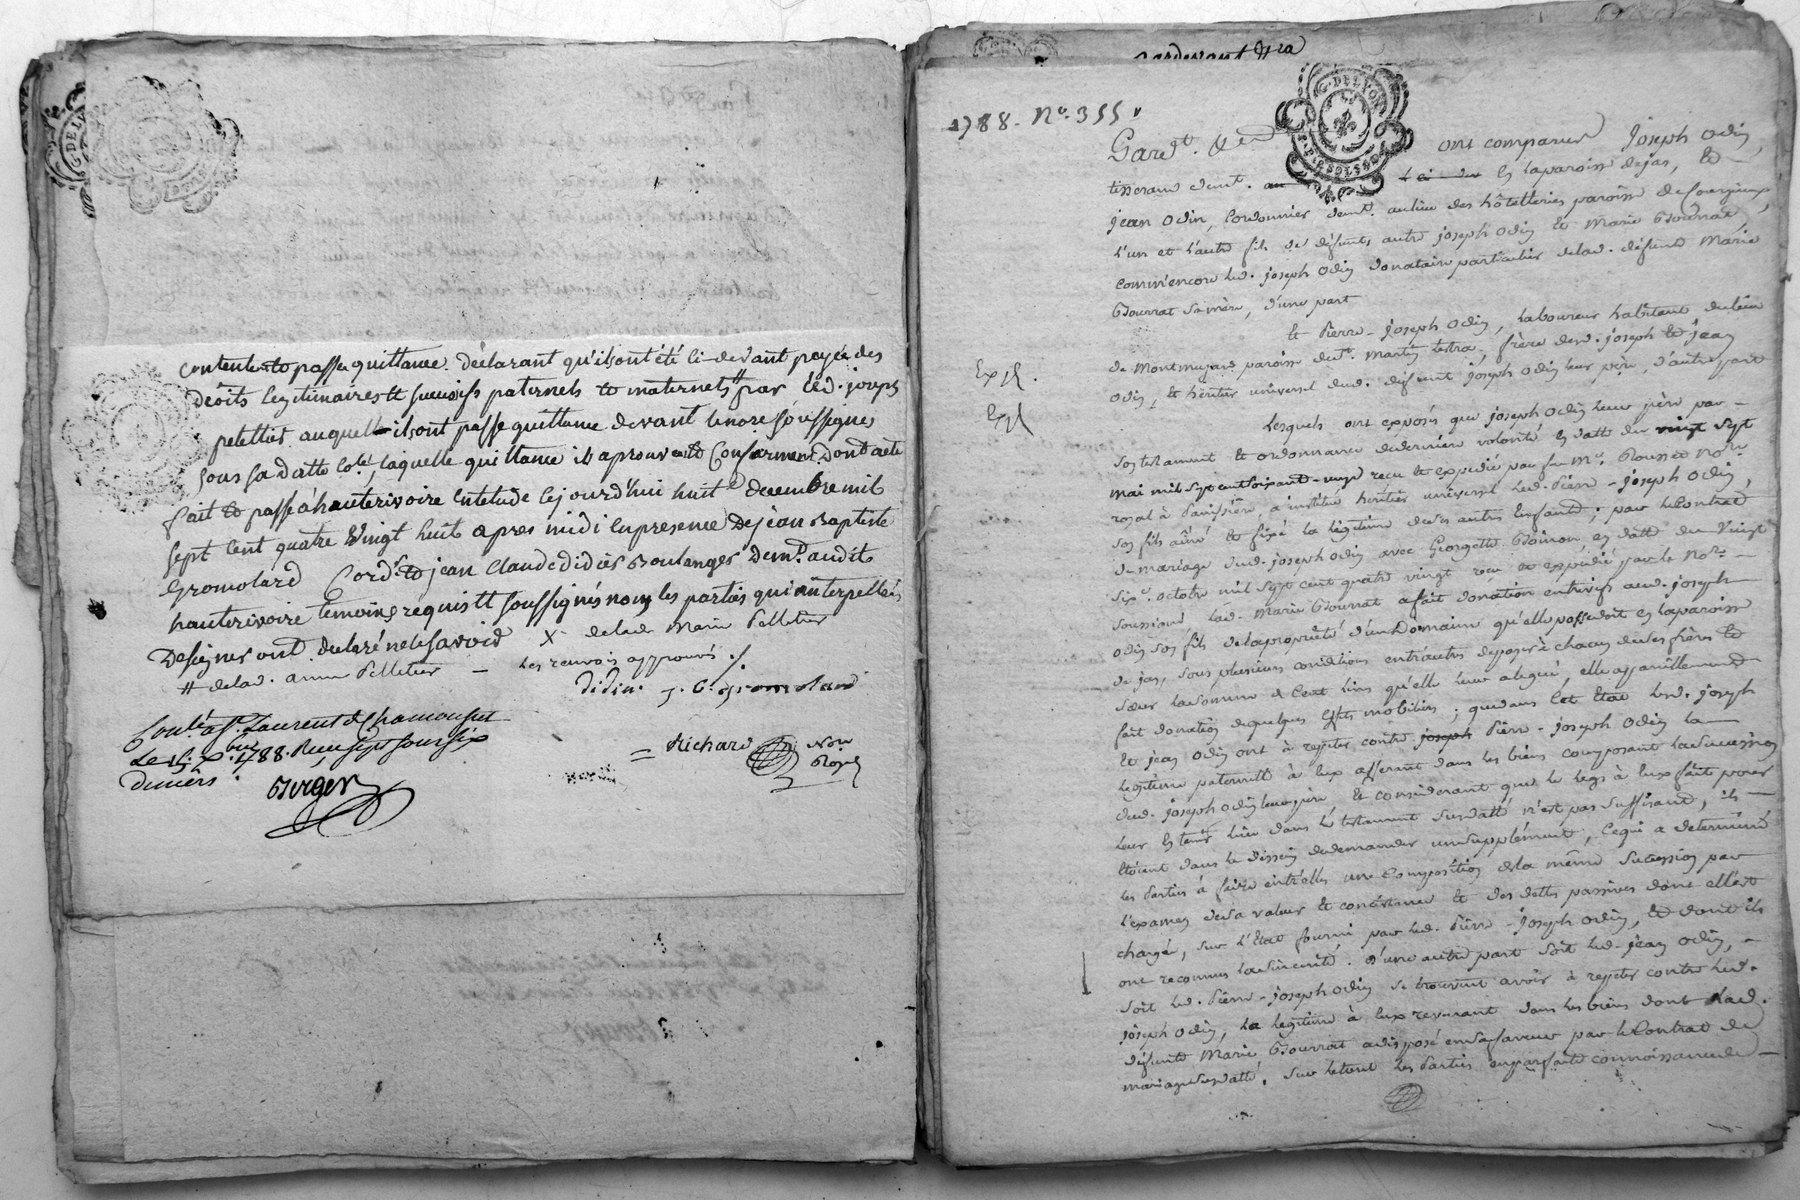 G. DE LYON
contente et passe quittance. déclarant qu'ils ont été ci-devant payés des
droits legitimaires et successifs paternels et maternels # par led. joseph
pelettier auquel ils ont passé quittance devant le nore soussigné
sous sa datte Colé, laquelle quittance ils aprouvent et Confirment. Dont acte
fait et passé à hauterivoire en l'etude cejourd'hui huit decembre mil
sept cent quatre vingt huit après midi en presence de jean Baptiste
Gromolard Cordr et jean Claude didier Boulanger demt. audit
hauterivoire temoins requis et soussignés non les parties qui interpellées
de signer ont declaré ne le savoir X delade Marie Pelletier
# delad. anne Pelletier — les renvois approuvés ./.
didier j. B. gromolard
Conlé a St. Laurent de Chamousset
Le 15. Xbre. 1788. Reçu sept sous six
deniers.
Berger
= Richard Nore
Royal
pardevant Nre
1788. No. 355
G. DE LYON
Garet. &er ont comparu joseph odin,
tisserand demt. en la paroisse de jas, et
jean odin, Cordonnier demt. au lieu des hôtelleries paroisse de
l'un et l'autre fils de défunts autre joseph odin et Marie Bourrat
comm'encore led. joseph odin donataire particulier de lad. défunte Marie
Bourrat sa mère, d'une part
et Pierre-joseph odin, laboureur habitant du lieu
de montmejard paroisse de St. Martin lestra, frère desd. joseph et jean
odin, et héritier universel dud. défunt joseph odin leur père, d'autre part
Exp.
Exp.
Lesquels ont exposé que joseph odin leur père par
son testament et ordonnance de dernière volonté en datte du vingt sept
mai mil sept cent soixante-neuf reçu et expédié par feu Me. Rousset nore.
royal à Panissière, a institué héritier universel led. Pierre-joseph odin,
son fils aîné et fixé la légitime de ses autres Enfants; par le Contrat
de mariage dud. joseph odin avec Georgette en datte du vingt
six octobre mil sept cent quatre vingt reçu et expédié par le Nore.
soussigné lad. Marie Bourrat a fait donation entrevifs aud. joseph
odin son fils de la propriété d'un Domaine qu'elle possedoit en la paroisse
de jas, sous plusieurs conditions entr'autres de payer à chacun de ses frères et
sœur la somme de Cent livres qu'elle leur a legué, elle a pareillement
fait donation de quelques effets mobiliers; que dans Cet Etat led. joseph
et jean odin ont à repeter contre joseph Pierre-joseph odin la
légitime paternelle à eux afferant dans les biens composant la succession
dud. joseph odin leur père, et considerant que le legs à eux fait pour
leur En tenir lieu dans le testament susdatté n'est pas suffisant, ils
étoient dans le dessein de demander un supplément, Ce qui a determiné
les Parties à faire entr'elles une composition de la même succession par
l'examen de sa valeur et consistance et des dettes passives dont elle est
chargée, sur l'Etat fourni par led. Pierre-joseph odin, et dont ils
ont reconnu la sincerité. D'une autre part soit led. jean odin,
soit led. Pierre-joseph odin se trouvent avoir à repeter contre led.
joseph odin, la legitime à eux revenant dans les biens dont lad.
défunte Marie Bourrat a disposé en sa faveur par le Contrat de
mariage susdatté. Sur le tout les Parties en parfaite connoissance de